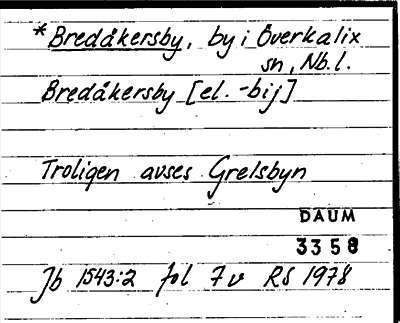 *Bredåkersby, by i Överkalix
sn, Nb.l.
Bredåkersby [el. -bij]
Troligen avses Grelsbyn
DAUM
3358
Jb 1543:2 fol 7v RS 1978